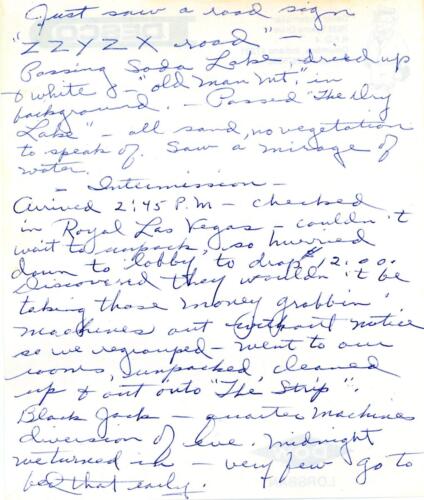 Just saw a road sign
"ZZYZX road" –
Passing Soda Lake, dried up
& white & – "old Man Mt." in
background. – Passed "The Dry
Lake" – all sand, no vegetation
to speak of. Saw a mirage of
water.
– Intermission –
Arrived 2:45 P.M – checked
in Royal Las Vegas – couldn't
wait to unpack, so hurried
down to lobby, to drop $12.00.
Discovered they wouldn't be
taking those money grabbin'
machines out without notice
so we regrouped – went to our
rooms, unpacked, cleaned
up & out onto "The Strip".
Black Jack – quarter machines
diversion of eve. Midnight
we turned in – very few go to
bed that early.